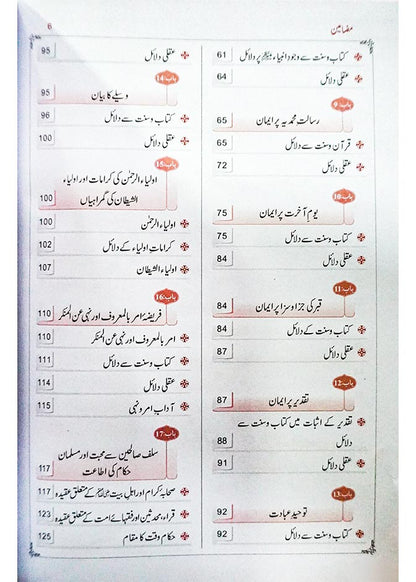 مضامین
6
کتاب وسنت سے وجود انبیاء ﷺ پر دلائل 61
عقلی دلائل 64
باب:9
رسالت محمدیہ پر ایمان 65
قرآن وسنت سے دلائل 65
عقلی دلائل 72
باب:10
یوم آخرت پر ایمان 75
کتاب وسنت سے دلائل 75
عقلی دلائل 84
باب:11
قبر کی جزا وسزا پر ایمان 84
کتاب وسنت کے دلائل 84
عقلی دلائل 87
باب:12
تقدیر پر ایمان 87
تقدیر کے اثبات میں کتاب وسنت سے
دلائل 88
عقلی دلائل 91
باب:13
توحید عبادت 92
کتاب وسنت سے دلائل 92
عقلی دلائل 95
باب:14
وسیلے کا بیان 95
کتاب وسنت سے دلائل 96
عقلی دلائل 100
باب:15
اولیاء الرحمٰن کی کرامات اور اولیاء
الشیطان کی گمراہیاں 100
اولیاء الرحمٰن 100
کرامات اولیاء کے دلائل 102
اولیاء الشیطان 107
باب:16
فریضۂ امر بالمعروف اور نہی عن المنکر 110
امر بالمعروف اور نہی عن المنکر 110
کتاب وسنت سے دلائل 111
عقلی دلائل 114
آداب امر ونہی 115
باب:17
سلف صالحین سے محبت اور مسلمان
حکام کی اطاعت 117
صحابۂ کرام اور اہل بیت کے متعلق عقیدہ 117
قراء، محدثین اور فقہائے امت کے متعلق عقیدہ 123
حکام وقت کا مقام 125